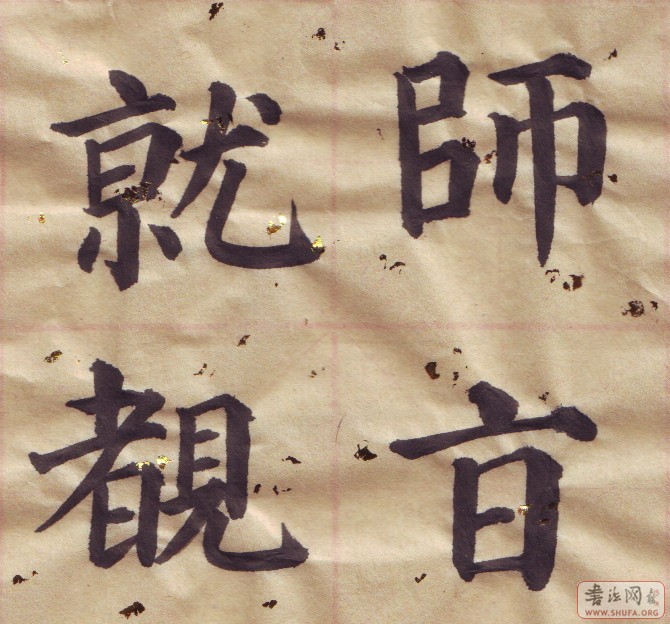 師
就覩
書法网
WWW.SHUFA.ORG